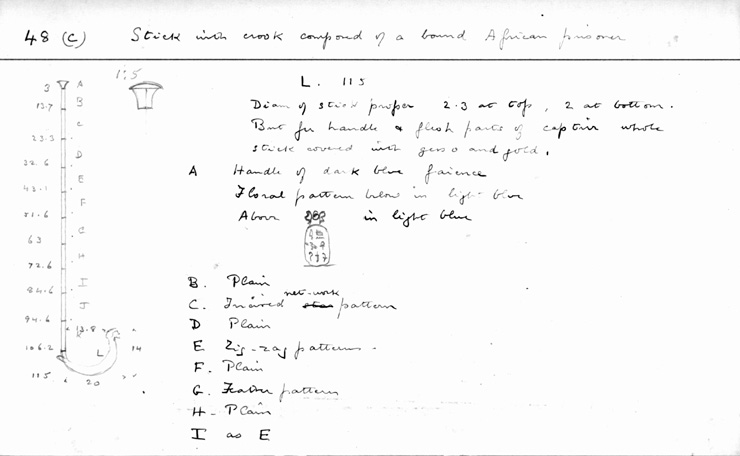 48 (c) Stick with crook composed of a bound African prisoner
1:5
L. 115
Diam of stick proper 2.3 at top, 2 at bottom.
But for handle & flesh parts of captive whole
stick covered with gesso and gold.
A Handle of dark blue faience
Floral pattern below in light blue
Above in light blue
B. Plain
net-work
C. Incised pattern
D Plain
E Zig-zag patterns.
F. Plain
G. Feather pattern
H - Plain
I as E
3 A
13.7 B
C
23.3
D
32.6
E
43.1
F
51.6
G
63
H
72.6
I
84.6
J
94.6
13.8
106.2 L 14
115 20